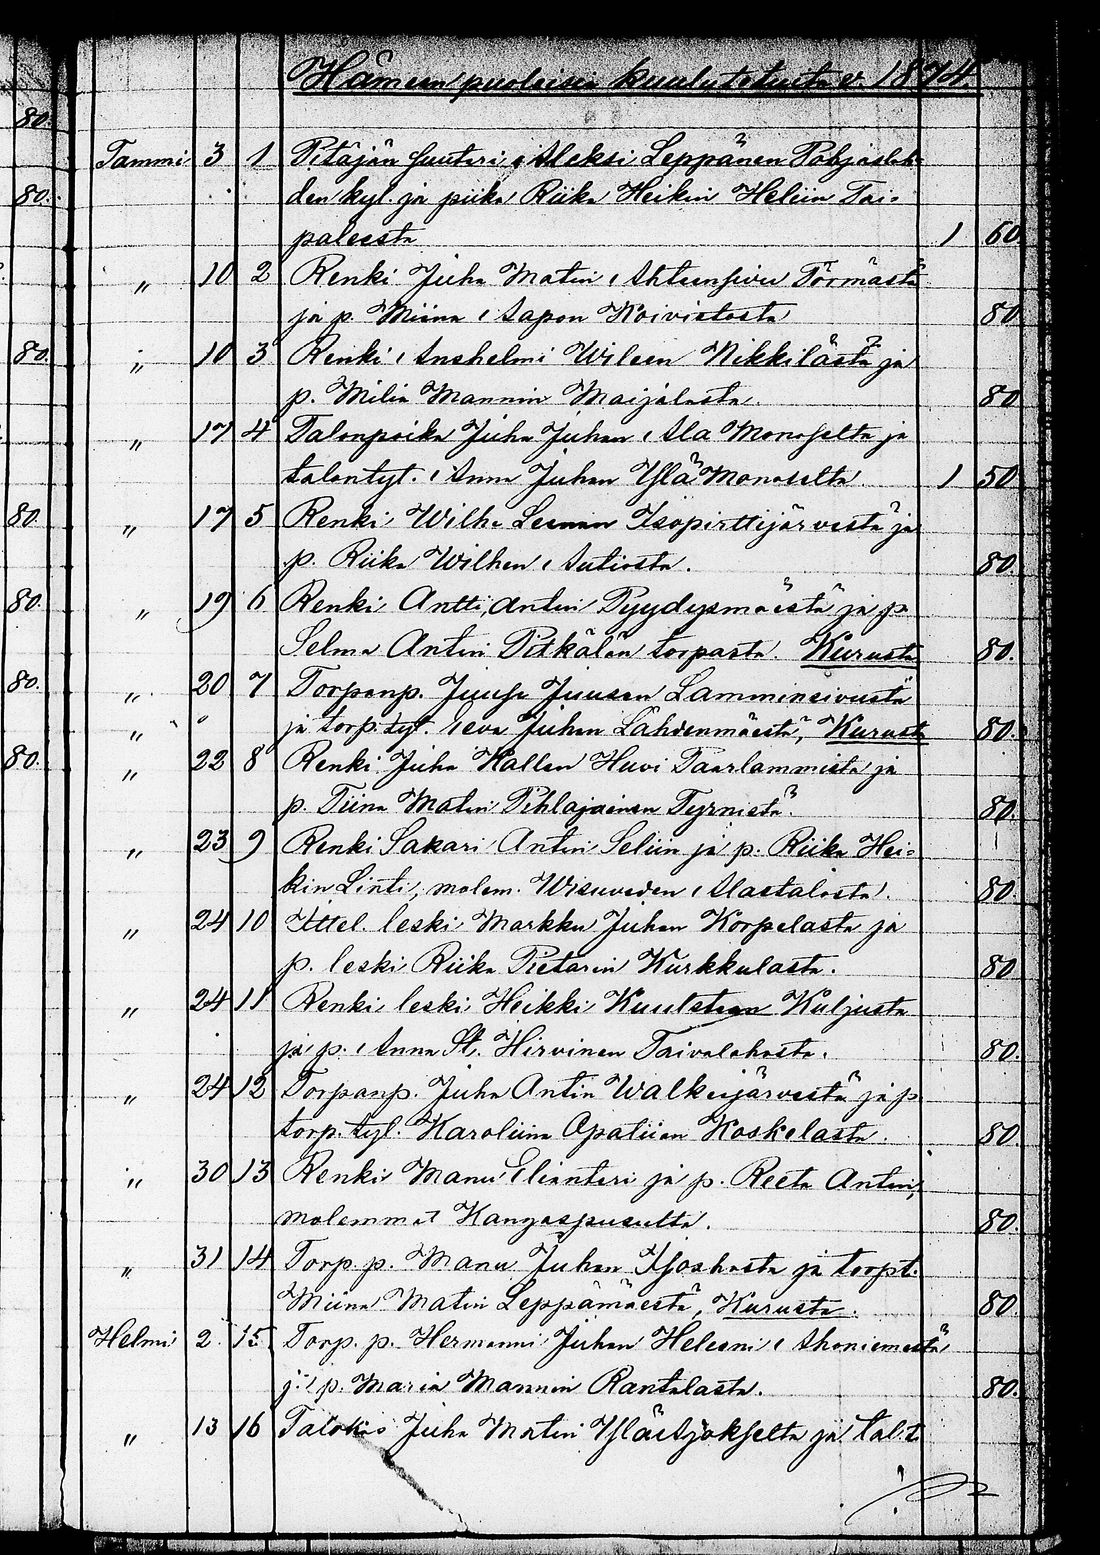 Hämeen puoleisia kuulutetuita v. 1874.
80.
Tammi 3 1 Pitäjän suutari Aleksi Leppänen Pohjaslah-
80. den kyl. ja piika Riika Heikin Heliin Tai-
paleesta 1 60
" 10 2 Renki Juha Matin Ahteensivu Törmästä
ja p. Miina Aapon Koivistosta 80
80. " 10 3 Renki Anshelmi Wileen Nikkilästä ja
p. Milia Mannin Maijalasta. 80
" 17 4 Talonpoika Juha Juhan Ala Monoselta ja
talontyt. Anna Juhan Ylä Monoselta 1 50
80. " 17 5 Renki Wilhe Leenan Isopirttijärvestä ja
p. Riika Wilhen Autiosta. 80.
80. " 19 6 Renki Antti Antin Pyydysmäestä ja p
Selma Antin Pitkälän torpasta. Kurusta 80.
80. " 20 7 Torpanp. Juuse Juusen Lamminsivusta
" ja torp. tyt. Eva Juhan Lahdenmäestä, Kurusta 80.
80. " 22 8 Renki Juha Kallen Huvi Paarlammista ja
p. Tiina Matin Pihlajainen Tyrnistä. 80.
" 23 9 Renki Sakari Antin Seliin ja p. Riika Hei-
kin Linti, molem. Wisuveden Alastalosta. 80.
" 24 10 Ittel. leski Markku Juhan Korpelasta ja
p. leski Riika Pietarin Kurkkulasta. 80
" 24 11 Renki leski Heikki Kuljusta
ja p. Anna St. Hirvinen Taivalahasta. 80.
" 24 12 Torpanp. Juha Antin Walkeijärvestä ja p
torp. tyt. Karoliina Apaliian Koskelasta. 80.
" 30 13 Renki Manu Elianteri ja p. Reeta Antin,
molemmat Kangaspusulta. 80.
" 31 14 Torp. p. Manu Juhan Isoahosta ja torpt.
Miina Matin Leppämäestä, Kurusta. 80
Helmi 2 15 Torp. p. Hermanni Juhan Heleeni Ahoniemestä
ja p. Maria Mannin Rantalasta. 80.
" 13 16 Juha Matin ja tal.t.